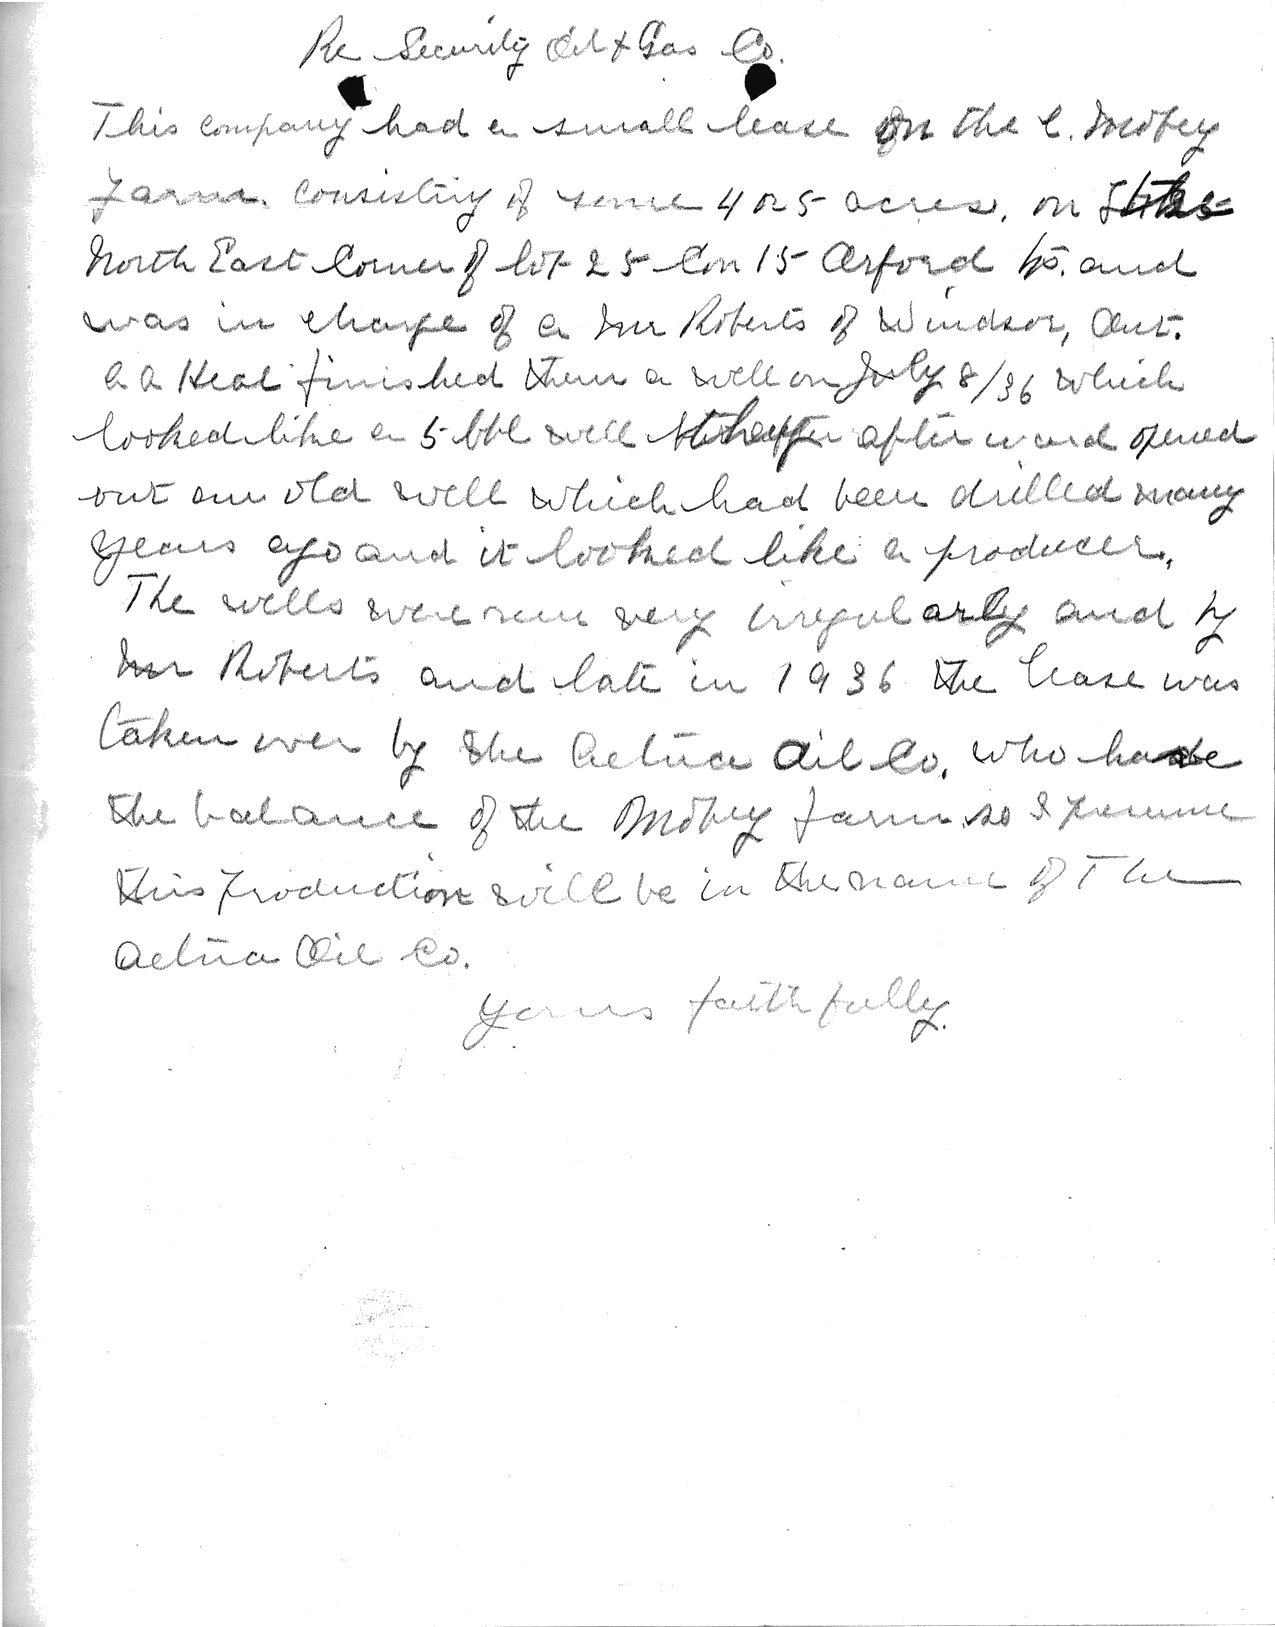 Re Security Oil & Gas Co.
This company had a small lease on the C. Mobey
Farm. Consisting of some 4 or 5 acres. on the
North East Corner of lot 25 Con 15 Orford tp. and
was in charge of a Mr Roberts of Windsor, Ont.
a a Heal finished them a well on July 8/36 which
looked like a 5 bbl well after ward opened
out an old well which had been drilled many
years ago and it looked like a producer.
The wells were run very irregularly and by
Mr Roberts and late in 1936 the lease was
taken over by the Aetna Oil Co. who have
the balance of the Mobey farm so I presume
this production will be in the name of The
Aetna Oil Co.
Yours faithfully.